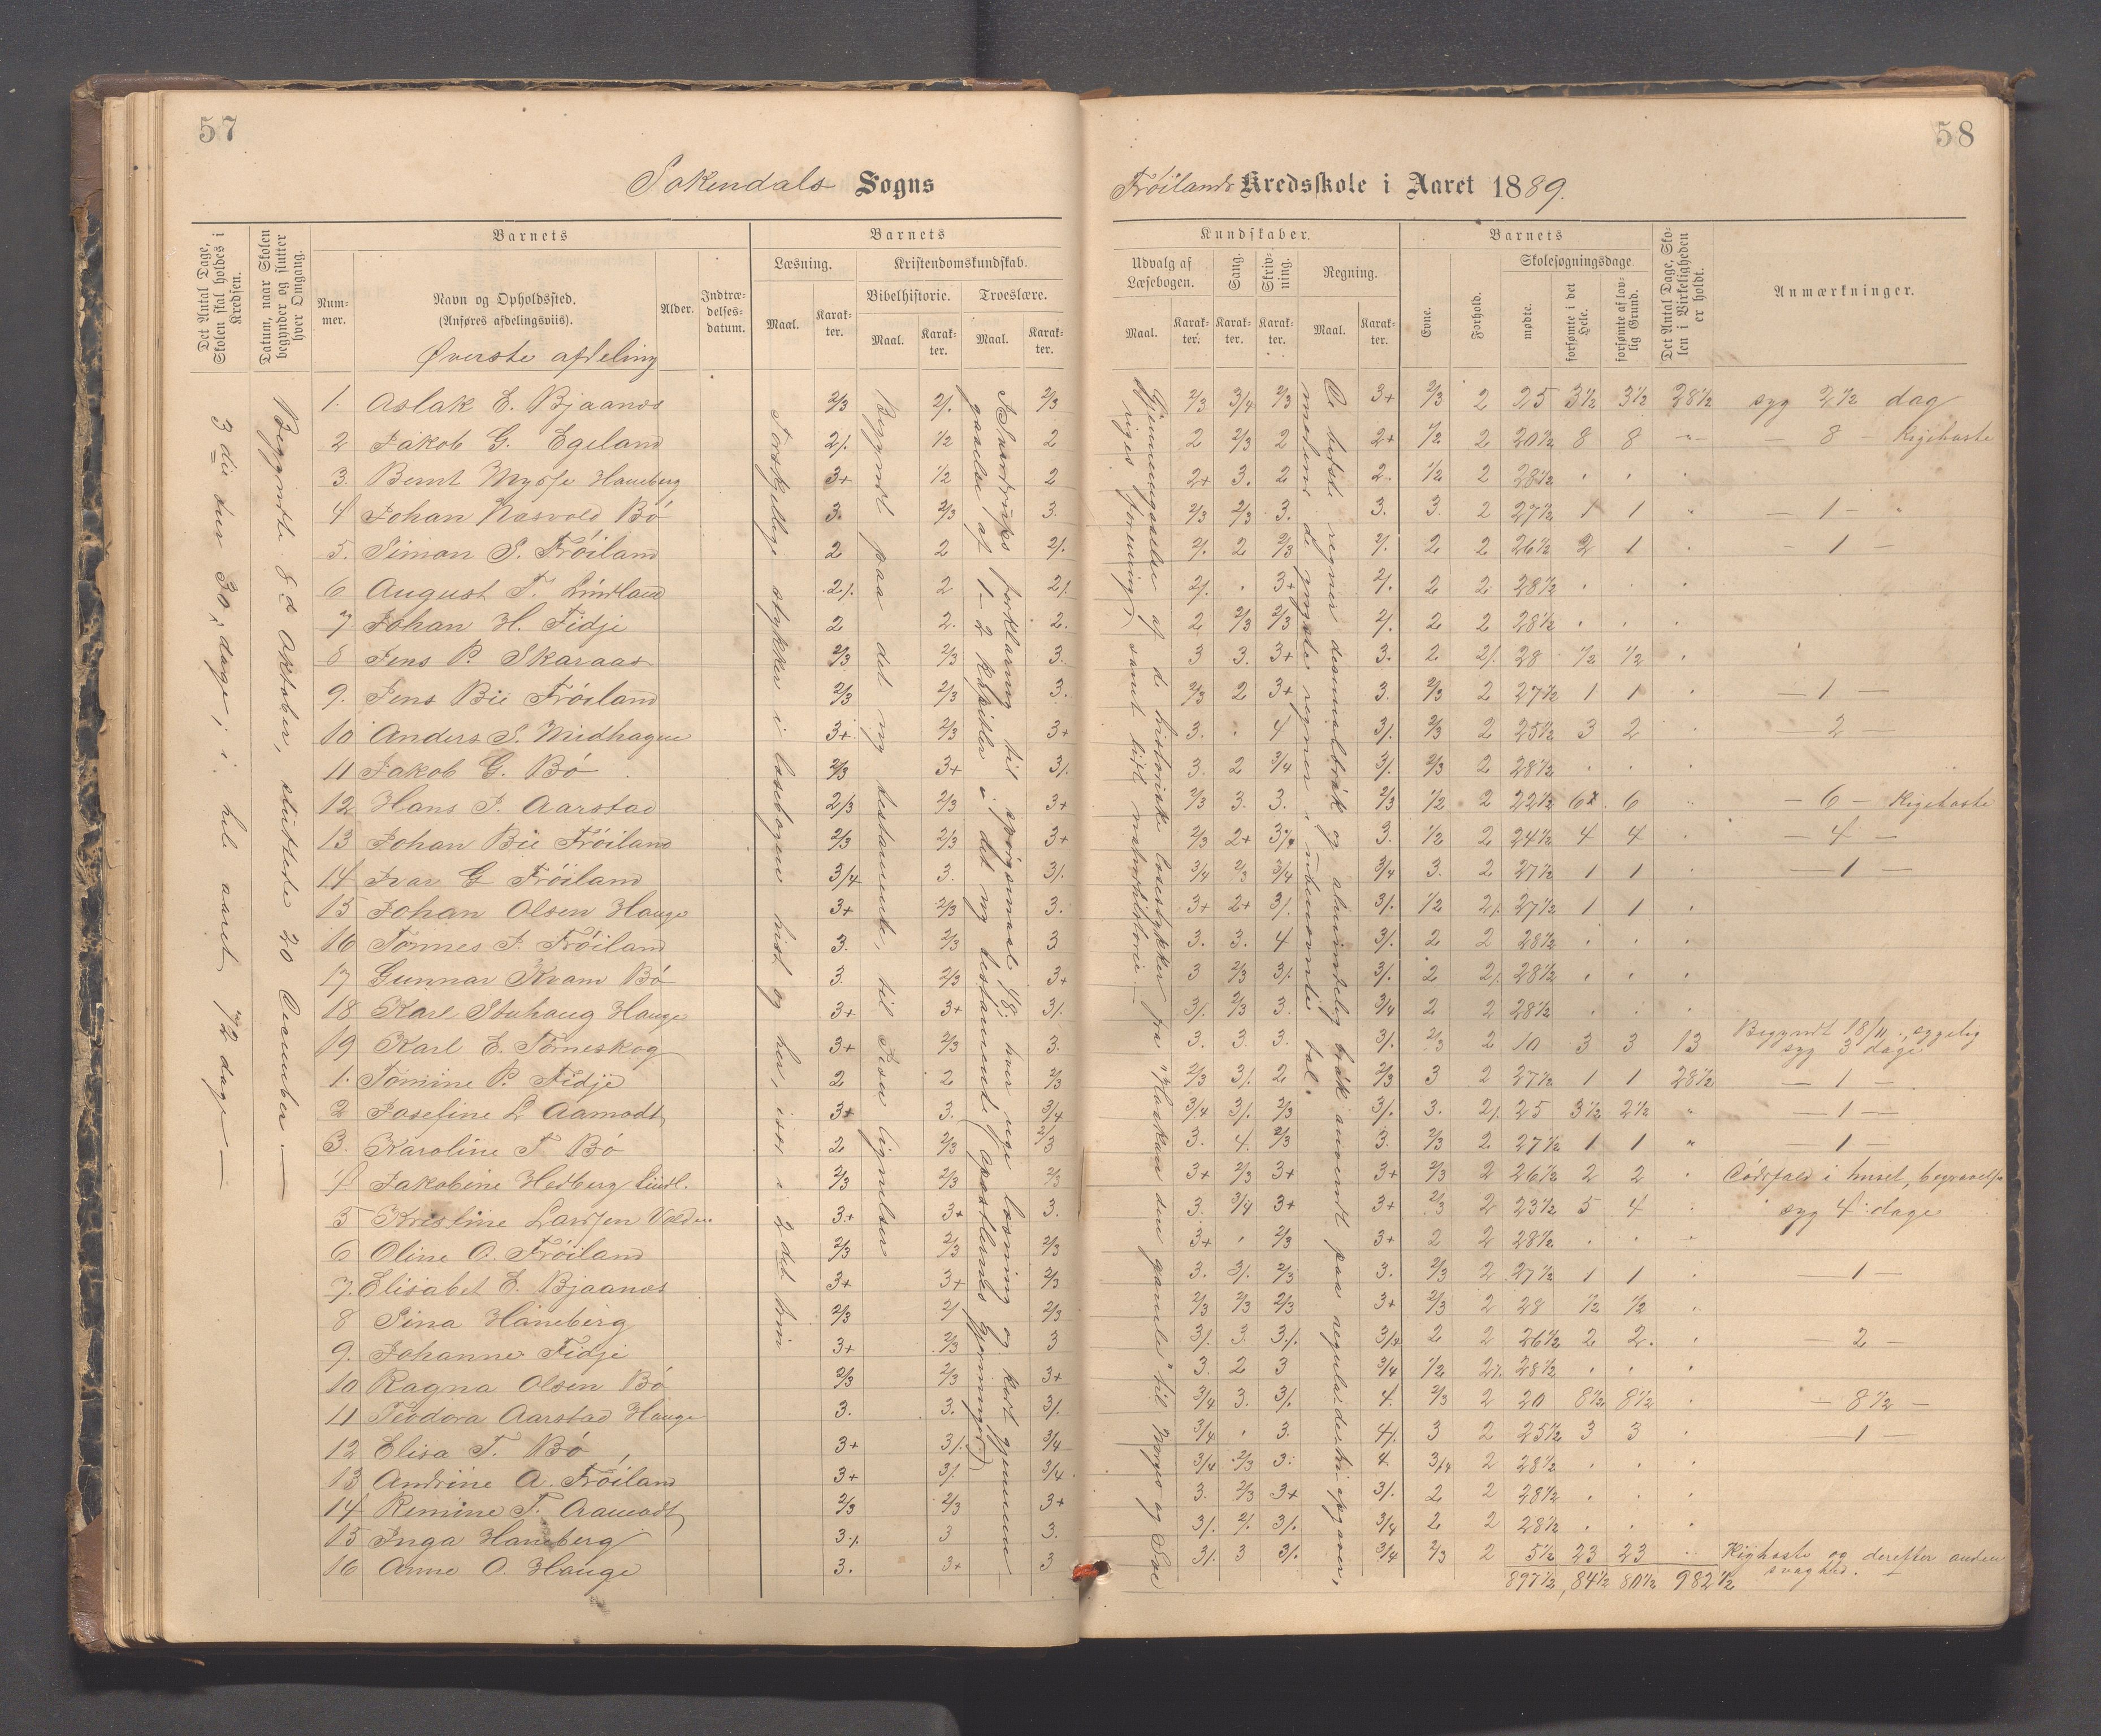 57
58
Sokendals Sogns
Frøilands Kredsskole i Aaret 1889.
Det Antal Dage, Skolen skal holdes i Kredsen.
Datum, naar Skolen begynder og slutter hver Omgang.
Barnets
Num-
mer.
Navn og Opholdssted.
(Anføres afdelingsviis).
Alder.
Indtræ-
delses-
datum.
Barnets
Læsning.
Maal.
Karak-
ter.
Kristendomskundskab.
Bibelhistorie.
Maal.
Karak-
ter.
Troeslære.
Maal.
Karak-
ter.
Kundskaber.
Udvalg af
Læsebogen.
Maal.
Karak-
ter.
Sang.
Karak-
ter.
Skriv-
ning.
Karak-
ter.
Regning.
Maal.
Karak-
ter.
Barnets
Evne.
Forhold.
Skolesøgningsdage
mødte.
forsømte i det Hele.
forsømte af lov-
lig Grund.
Det Antal Dage, Sko-
len i Virkeligheden
er holdt.
Anmærkninger.
Øverste afdeling
3die dur 30 dage, i hele aaret 72 dage —
Begyndte 8d Oktober, sluttede 20 December. —
Forskjellige stykker i læsebogen hist og her, især i 2det trin
Begyndt paa det ny testamente, til Jesu lignelser
1. Aslak E. Bjaanes 2/3 2/. 2/3 2/3 3/4 2/3 3+ 2/3 2 25 3½ 3½ 28½ syg 2½ dag
2 Jakob G. Egeland 2/. 1/2 2 2 2/3 2 2+ 1/2 2 20½ 8 8 " — 8 — Kighoste
3. Bernt Mysse Haneberg 3+ 1/2 2 2+ 3. 2 2. 1/2 2 28½
4 Johan Nasvold Bö 3. 2/3 3. 2/3 2/3 3. 3. 3. 2 27½ 1 1 — 1 —
5. Simon S. Fröiland 2 2 2/. 2/. 2 2/3 2/. 2 2 26½ 2 1 — 1 —
6 August T. Lindland 2/. 2 2/. 2/. 3+ 2/. 2 2 28½
7 Johan H. Fidje 2 2. 2. 2 2/3 2/3 2/. 2 2 28½
8 Jens P. Skaraas 2/3 2/3 3. 3 3. 3+ 3. 2 2/. 28 ½ ½
9. Jens Bie Fröiland 2/3 2/3 3. 2/3 2 3+ 3. 2/3 2 27½ 1 1 — 1 —
10 Anders S. Midhagen 3+ 2/3 3+ 3. 4 3/. 2/3 2 25½ 3 2 — 2 —
11 Jakob G. Bö 2/3 3+ 3/. 3. 2 3/4 3/. 2/3 2 28½
12 Hans J. Aarstad 2/3 2/3 3+ 2/3 3. 3. 2/3 1/2 2 22½ 6 6 — 6 — Kighoste
13 Johan Bie Fröiland 2/3 2/3 3+ 2/3 2+ 3/4 3. 1/2 2 24½ 4 4 — 4 —
14 Ivar G Fröiland 3/4 3. 3/. 3/4 2/3 3/4 3/4 3. 2 27½ 1 1 — 1 —
15 Johan Olsen Hauge 3+ 2/3 3. 3+ 2+ 3/. 3/. 1/2 2/. 27½ 1 1
16 Tönnes J. Fröiland 3. 2/3 3 3. 3. 4 3/. 2 2 28½
17 Gunnar Kvam Bö 3. 2/3 3+ 3 2/3 3/. 3/. 2 2/. 28½
18 Karl Stuhaug Hauge 3+ 3+ 3/. 3/. 2/3 3. 3/4 2 2 28½
19 Karl E. Törneskog 3+ 2/3 3. 3. 3. 3. 3/. 2/3 2 10 3 3 13 Begyndt 18/11
syg 3 dage
1. Tomine P. Fidje 2 2 2/3 2/3 3/. 2 2/3 3 2 27½ 1 1 28½ — 1 —
2 Josefine L Aamodt 3+ 3. 3/4 3/4 3/. 2/3 3/. 3. 2/. 25 3½ 2½ " — 1 —
3. Karoline T Bö 2 2/3 2/3 3. 4. 2/3 3. 2/3 2 27½ 1 1 " — 1 —
4 Jakobine Hedberg Lindl. 2/3 2/3 2/3 3+ 2/3 3+ 3+ 2/3 2 26½ 2 2 Dödsfald i huset, begravelse
5 Kristine Larssen Volden 3+ 3+ 3. 3. 3/4 3+ 3+ 2/3 2 23½ 5 4 syg 4 dage
6 Oline O. Fröiland 2/3 2/3 2/3 3+ 2/3 3+ 2 2 28½
7. Elisabet E. Bjaanes 3+ 3+ 2/3 3. 3/. 2/3 3. 2/3 2 27½ 1 1 — 1 —
8 Sina Haneberg 2/3 2/ 2/3 2/3 2/3 2/3 3+ 2/3 2 28 ½ ½
9. Johanne Fidje 3+ 2/3 3 3/. 3. 3/. 3/4 2 2 26½ 2 2. — 2 —
10 Ragna Olsen Bö 2/3 2/3 3+ 3. 2 3 3/4 1/2 2/. 28½
11 Teodora Aarstad Hauge 3. 3. 3/. 3/4 3. 3/. 4. 2/3 2 20 8½ 8½ — 8½ —
12 Elisa T. Bö 3+ 3/. 3/4 3/4 3. 4/. 3 2 25½ 3 3 — 1 —
13 Andrine A. Fröiland 3+ 3/. 3/4 3/4 2/3 3. 4. 3/4 2 28½
14 Remine T. Aamodt 2/3 2/3 3+ 3. 2/3 3+ 3/. 2 2 28½
15 Inga Haneberg 3/. 3 3. 3/. 2/. 3/. 3/4 2 2 28½
16 Anne O. Hauge 3. 3+ 3 3/. 3 3/. 3/4 2/3 2 5½ 23 23 Kighoste og derefter anden
svaghed.
897½ 84½ 80½ 982½